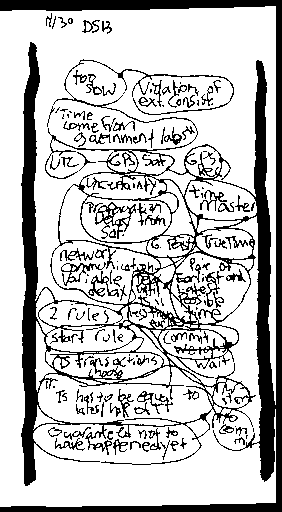 11/30 DS13
too slow
Violation of ext. consist
"Time come from government labs"
UTC
GPS Sat
GPS Rec
Uncertainty
time master
Propagation delay from sat
G
TrueTime
network communication variable delay
Pair of earliest and latest possible time
2 rules
start rule
commit wait
Ts transactions choose
TT
start
Ts has to be equal to latest half of TT
TT to commit
Guaranteed not to have happened yet